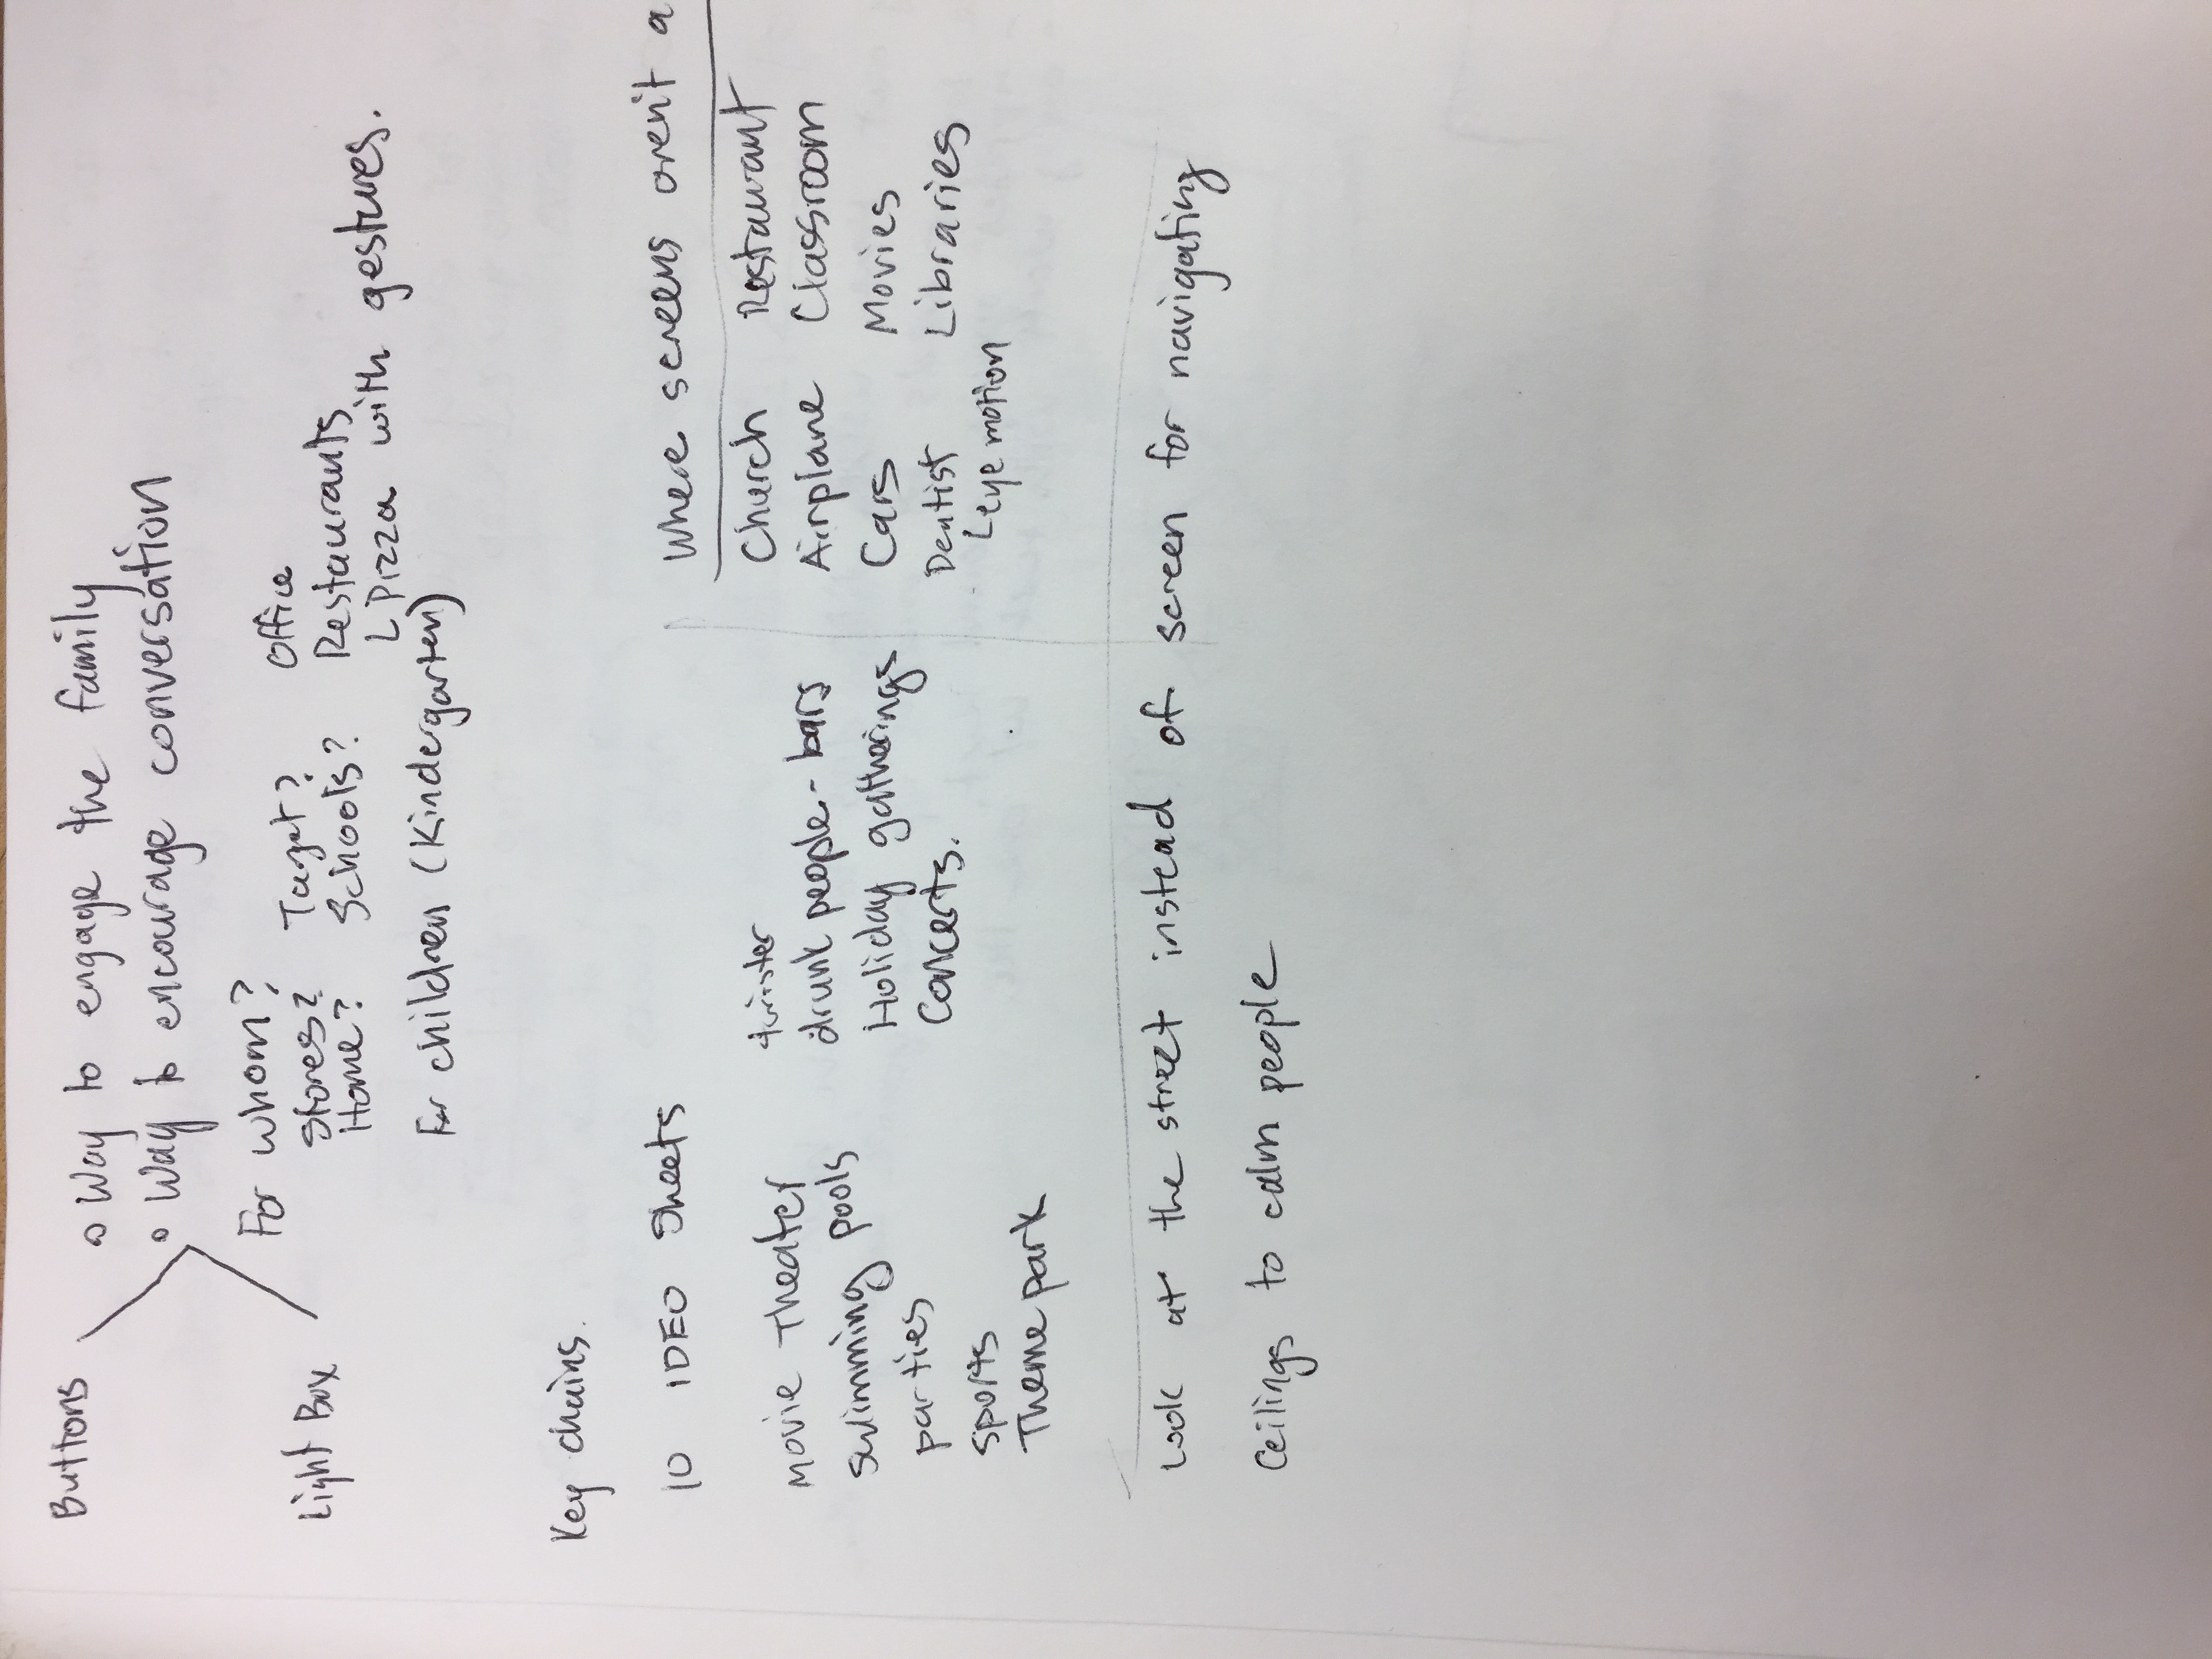 Buttons
o Way to engage the family
o Way to encourage conversation
Light Box
For whom?
Stores? Target? Office
Home? Schools? Restaurants
L Pizza with gestures.
For children (Kindergarten)
Key chains.
10 IDEO Sheets
Movie Theater
swimming pools
parties
sports
Theme park
twister
drunk people - bars
Holiday gatherings
Concerts.
Where screens aren't a
Church Restaurant
Airplane Classroom
Cars Movies
Dentist Libraries
L eye motion
Look at the street instead of screen for navigating
Ceilings to calm people